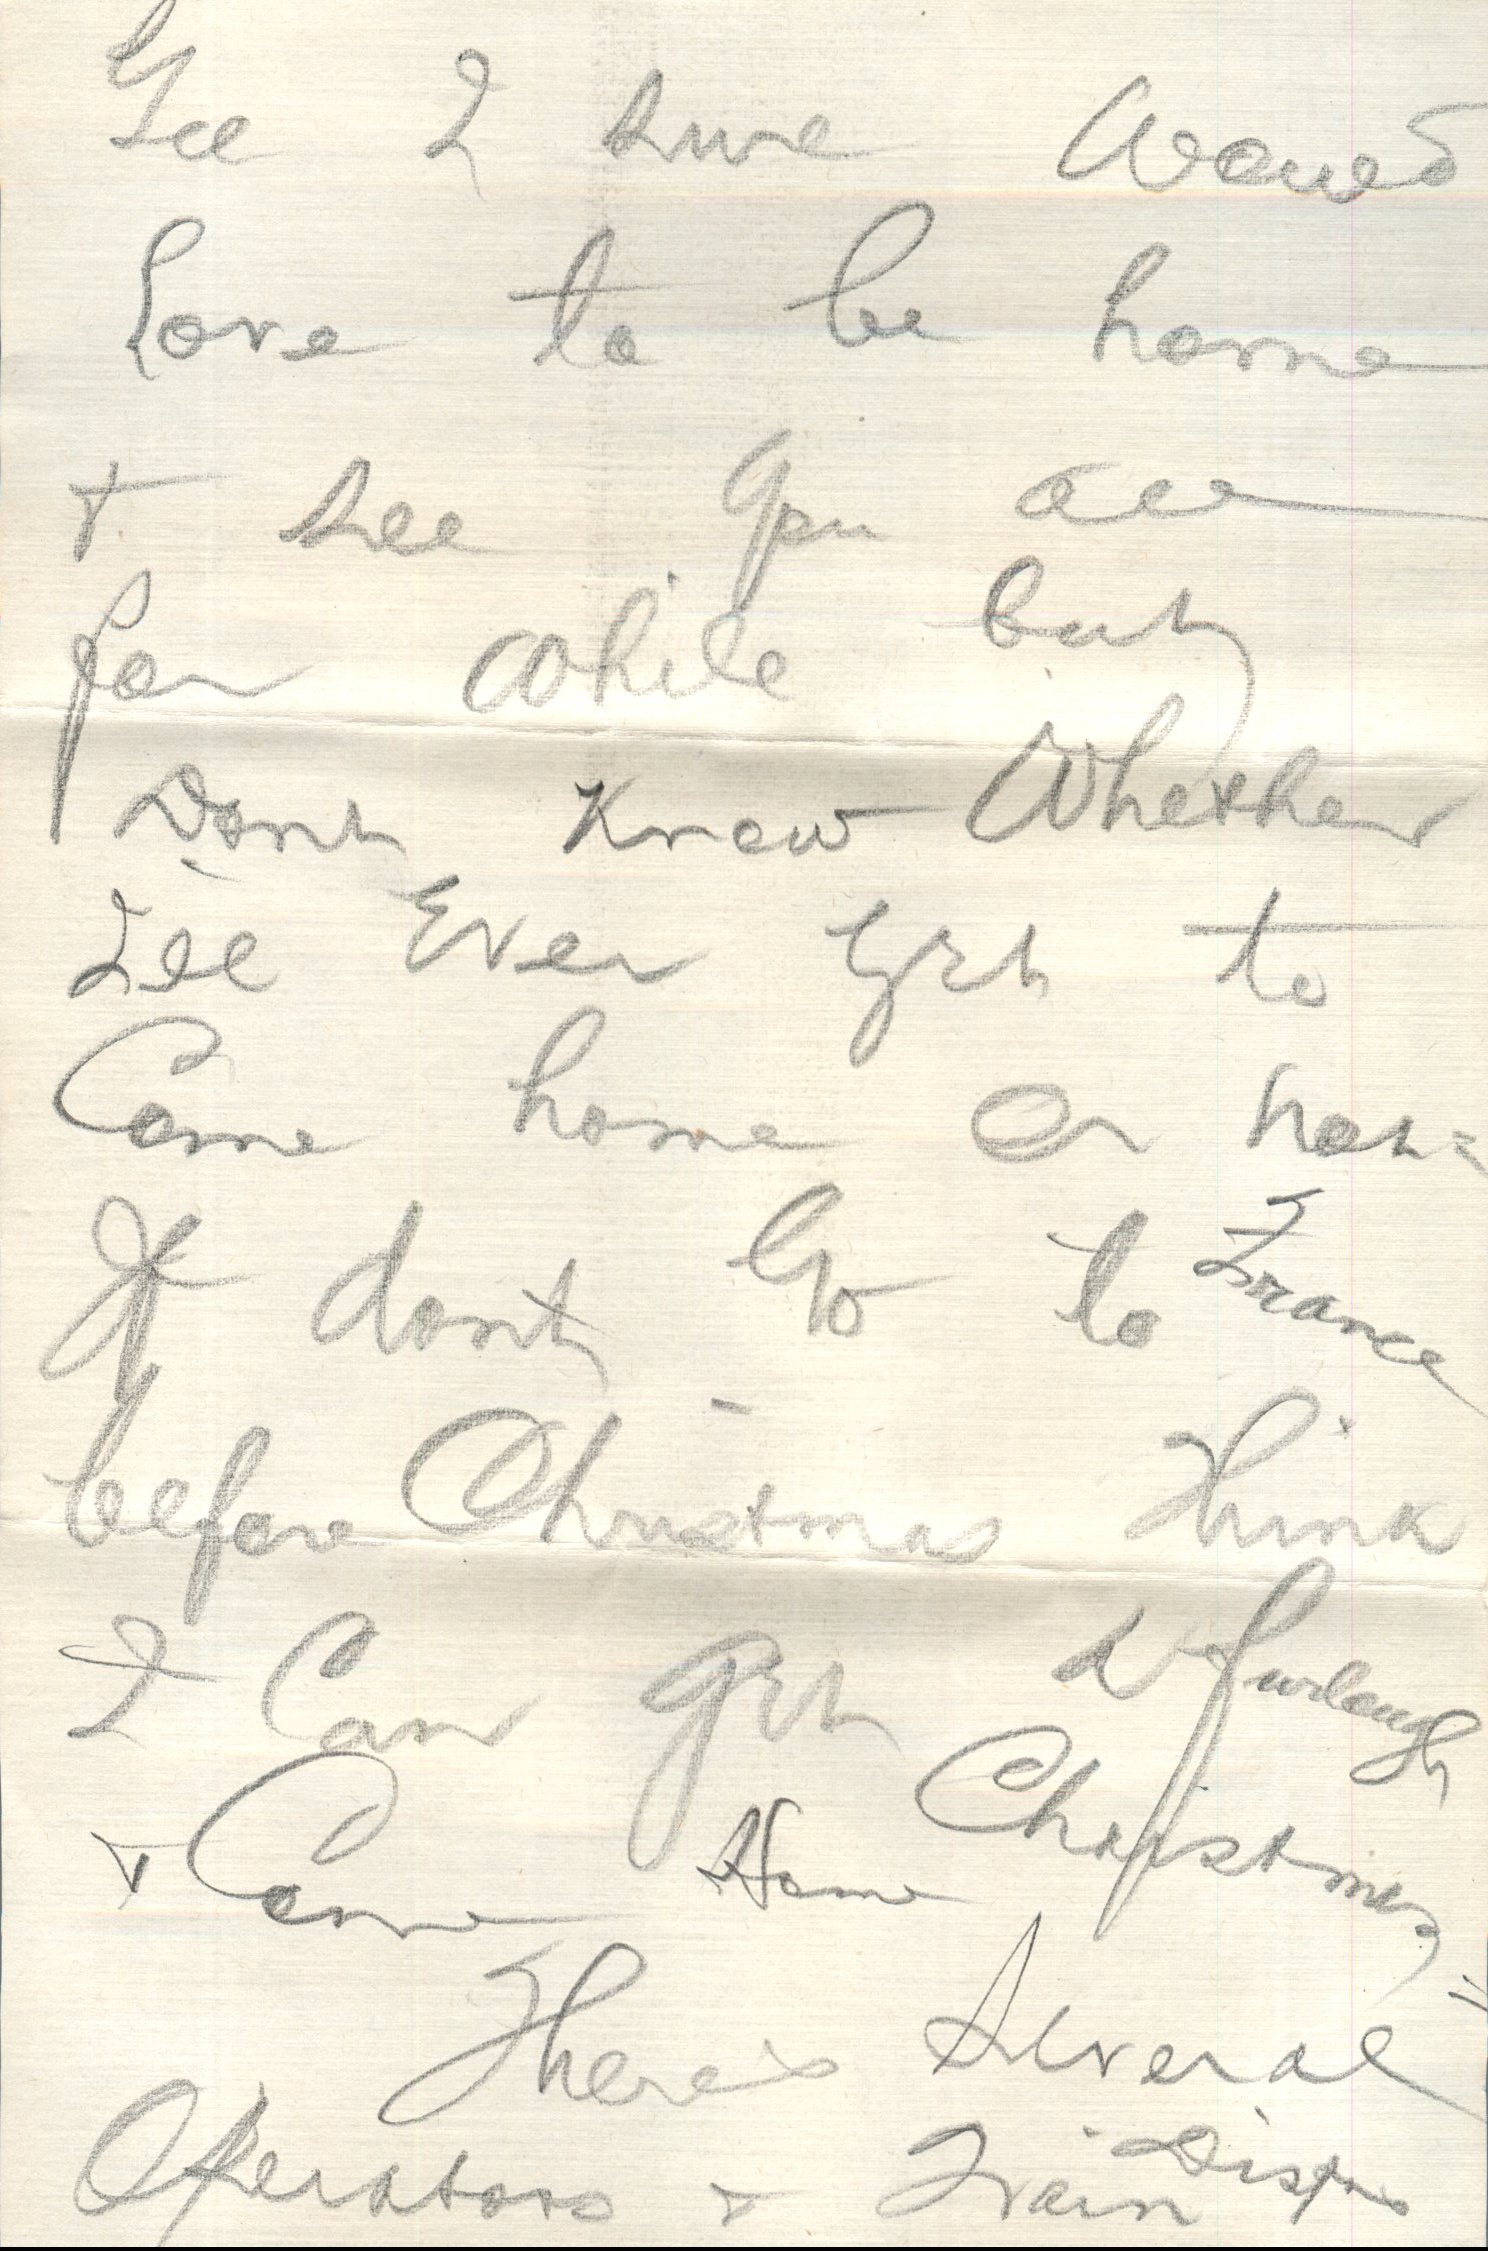 Gee I sure Would
Love to be home
+ see you all
for while but
Dont Know Whether
Ill Ever get to
Come home or not=
If dont Go to France
before Christmas Think
I Can get a furlough
+ Come Home Christmas
There's Several
Operators + Train Disps